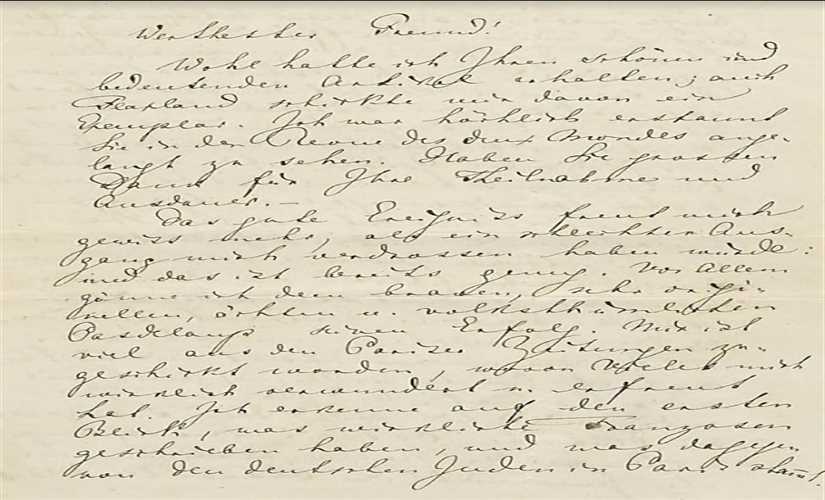 Werthester Freund!
Wohl hatte ich Ihren schönen und
bedeutenden Artikel erhalten; auch
Flaxland schickte mir davon ein
Exemplar. Ich war höchlich erstaunt
Sie in der Revue des deux Mondes ange-
langt zu sehen. Haben Sie grossen
Dank für Ihre Theilnahme und
Ausdauer. —
Das gute Ereigniss freut mich
gewiss mehr, als ein schlechter Aus-
gang mich verdrossen haben würde:
und das ist bereits genug. Vor Allem
gönne ich dem braven, sehr origi-
nellen, ächten u. volksthümlichen
Pasdeloup seinen Erfolg. Mir ist
viel aus den Pariser Zeitungen zu-
geschickt worden, wovon Vieles mich
wirklich verwundert u. erfreut
hat. Ich erkenne auf den ersten
Blick, was wirkliche Franzosen
geschrieben haben, und was dagegen
von den deutschen Juden in Paris stammt.